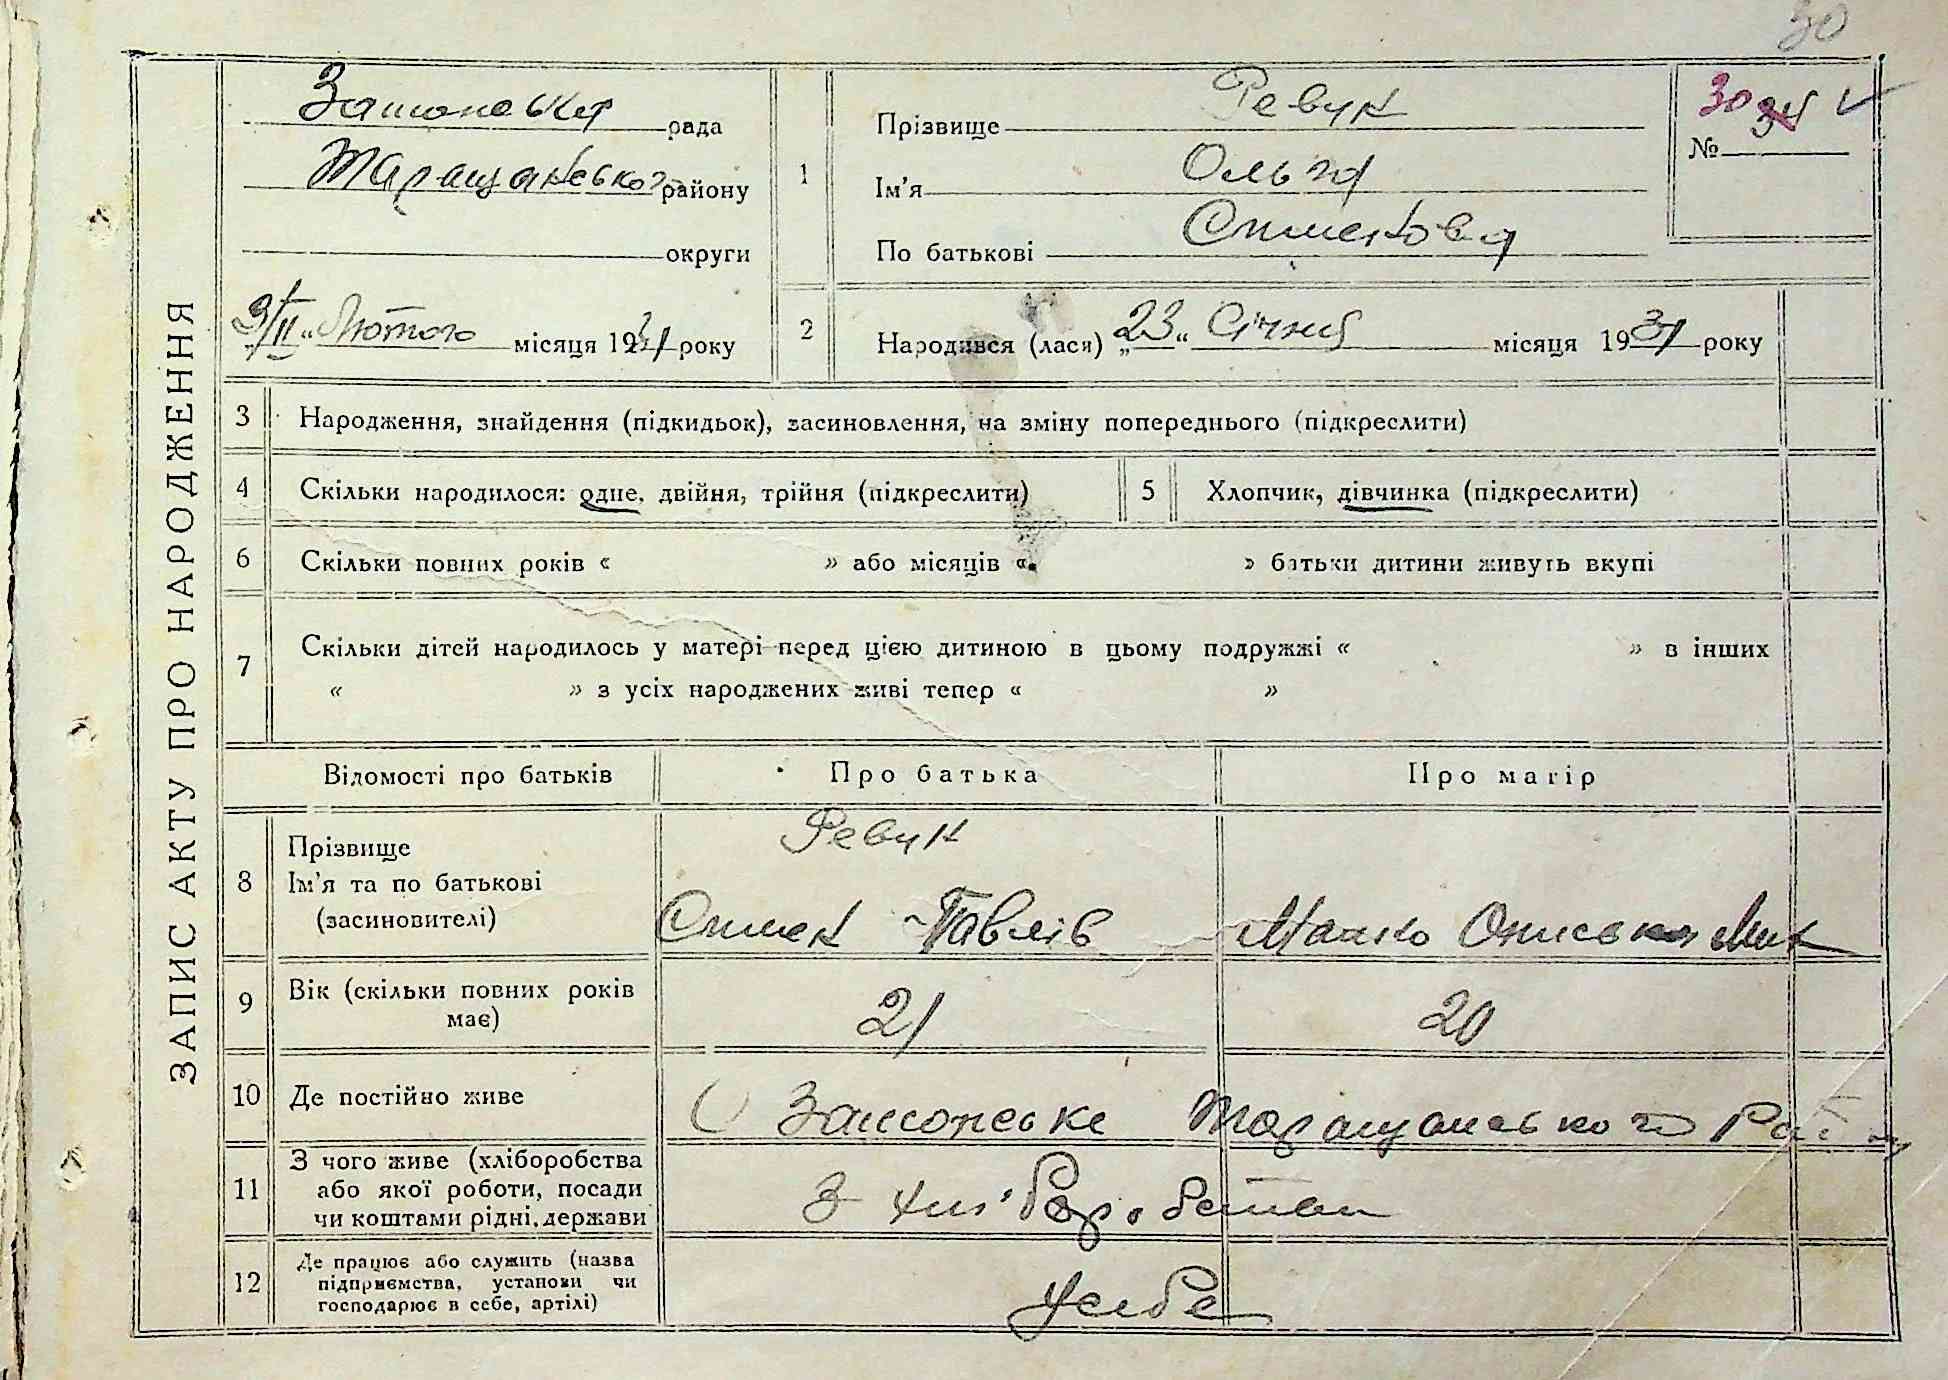 30
ЗАПИС АКТУ ПРО НАРОДЖЕННЯ
рада
Таращанського району
округи
3/II „ Лютого місяця 1931 року
1
Прізвище Ревук
Ім'я Ольга
По батькові
30 34
№
2
Народився (лася) „23“ Січня місяця 1931 року
3 Народження, знайдення (підкидьок), засиновлення, на зміну попереднього (підкреслити)
4 Скільки народилося: одне, двійня, трійня (підкреслити)
5 Хлопчик, дівчинка (підкреслити)
6 Скільки повних років « » або місяців « » батьки дитини живуть вкупі
7 Скільки дітей народилось у матері перед цією дитиною в цьому подружжі « » в інших
« » з усіх народжених живі тепер « »
Відомості про батьків
Про батька
Про матір
8 Прізвище
Ім'я та по батькові
(засиновителі)
Ревук
Павлів
9 Вік (скільки повних років
має)
21
20
10 Де постійно живе
Таращанського
11 З чого живе (хліборобства
або якої роботи, посади
чи коштами рідні, держави
З
12 Де працює або служить (назва
підприємства, установи чи
господарює в себе, артілі)